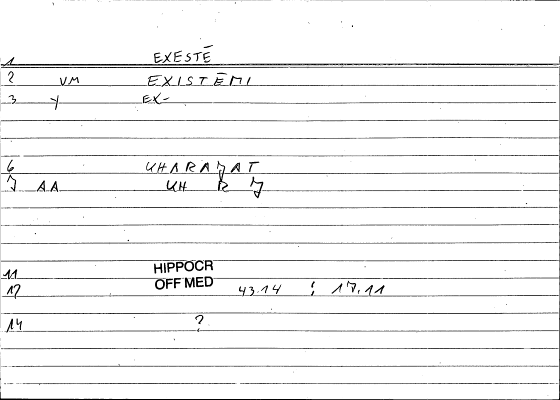 1 EXESTĒ
2 VM EXISTĒMI
3 Y EX-
6 KHARAJAT
7 AA KH R J
11 HIPPOCR
12 OFF MED 43.14 ; 17.11
14 ?